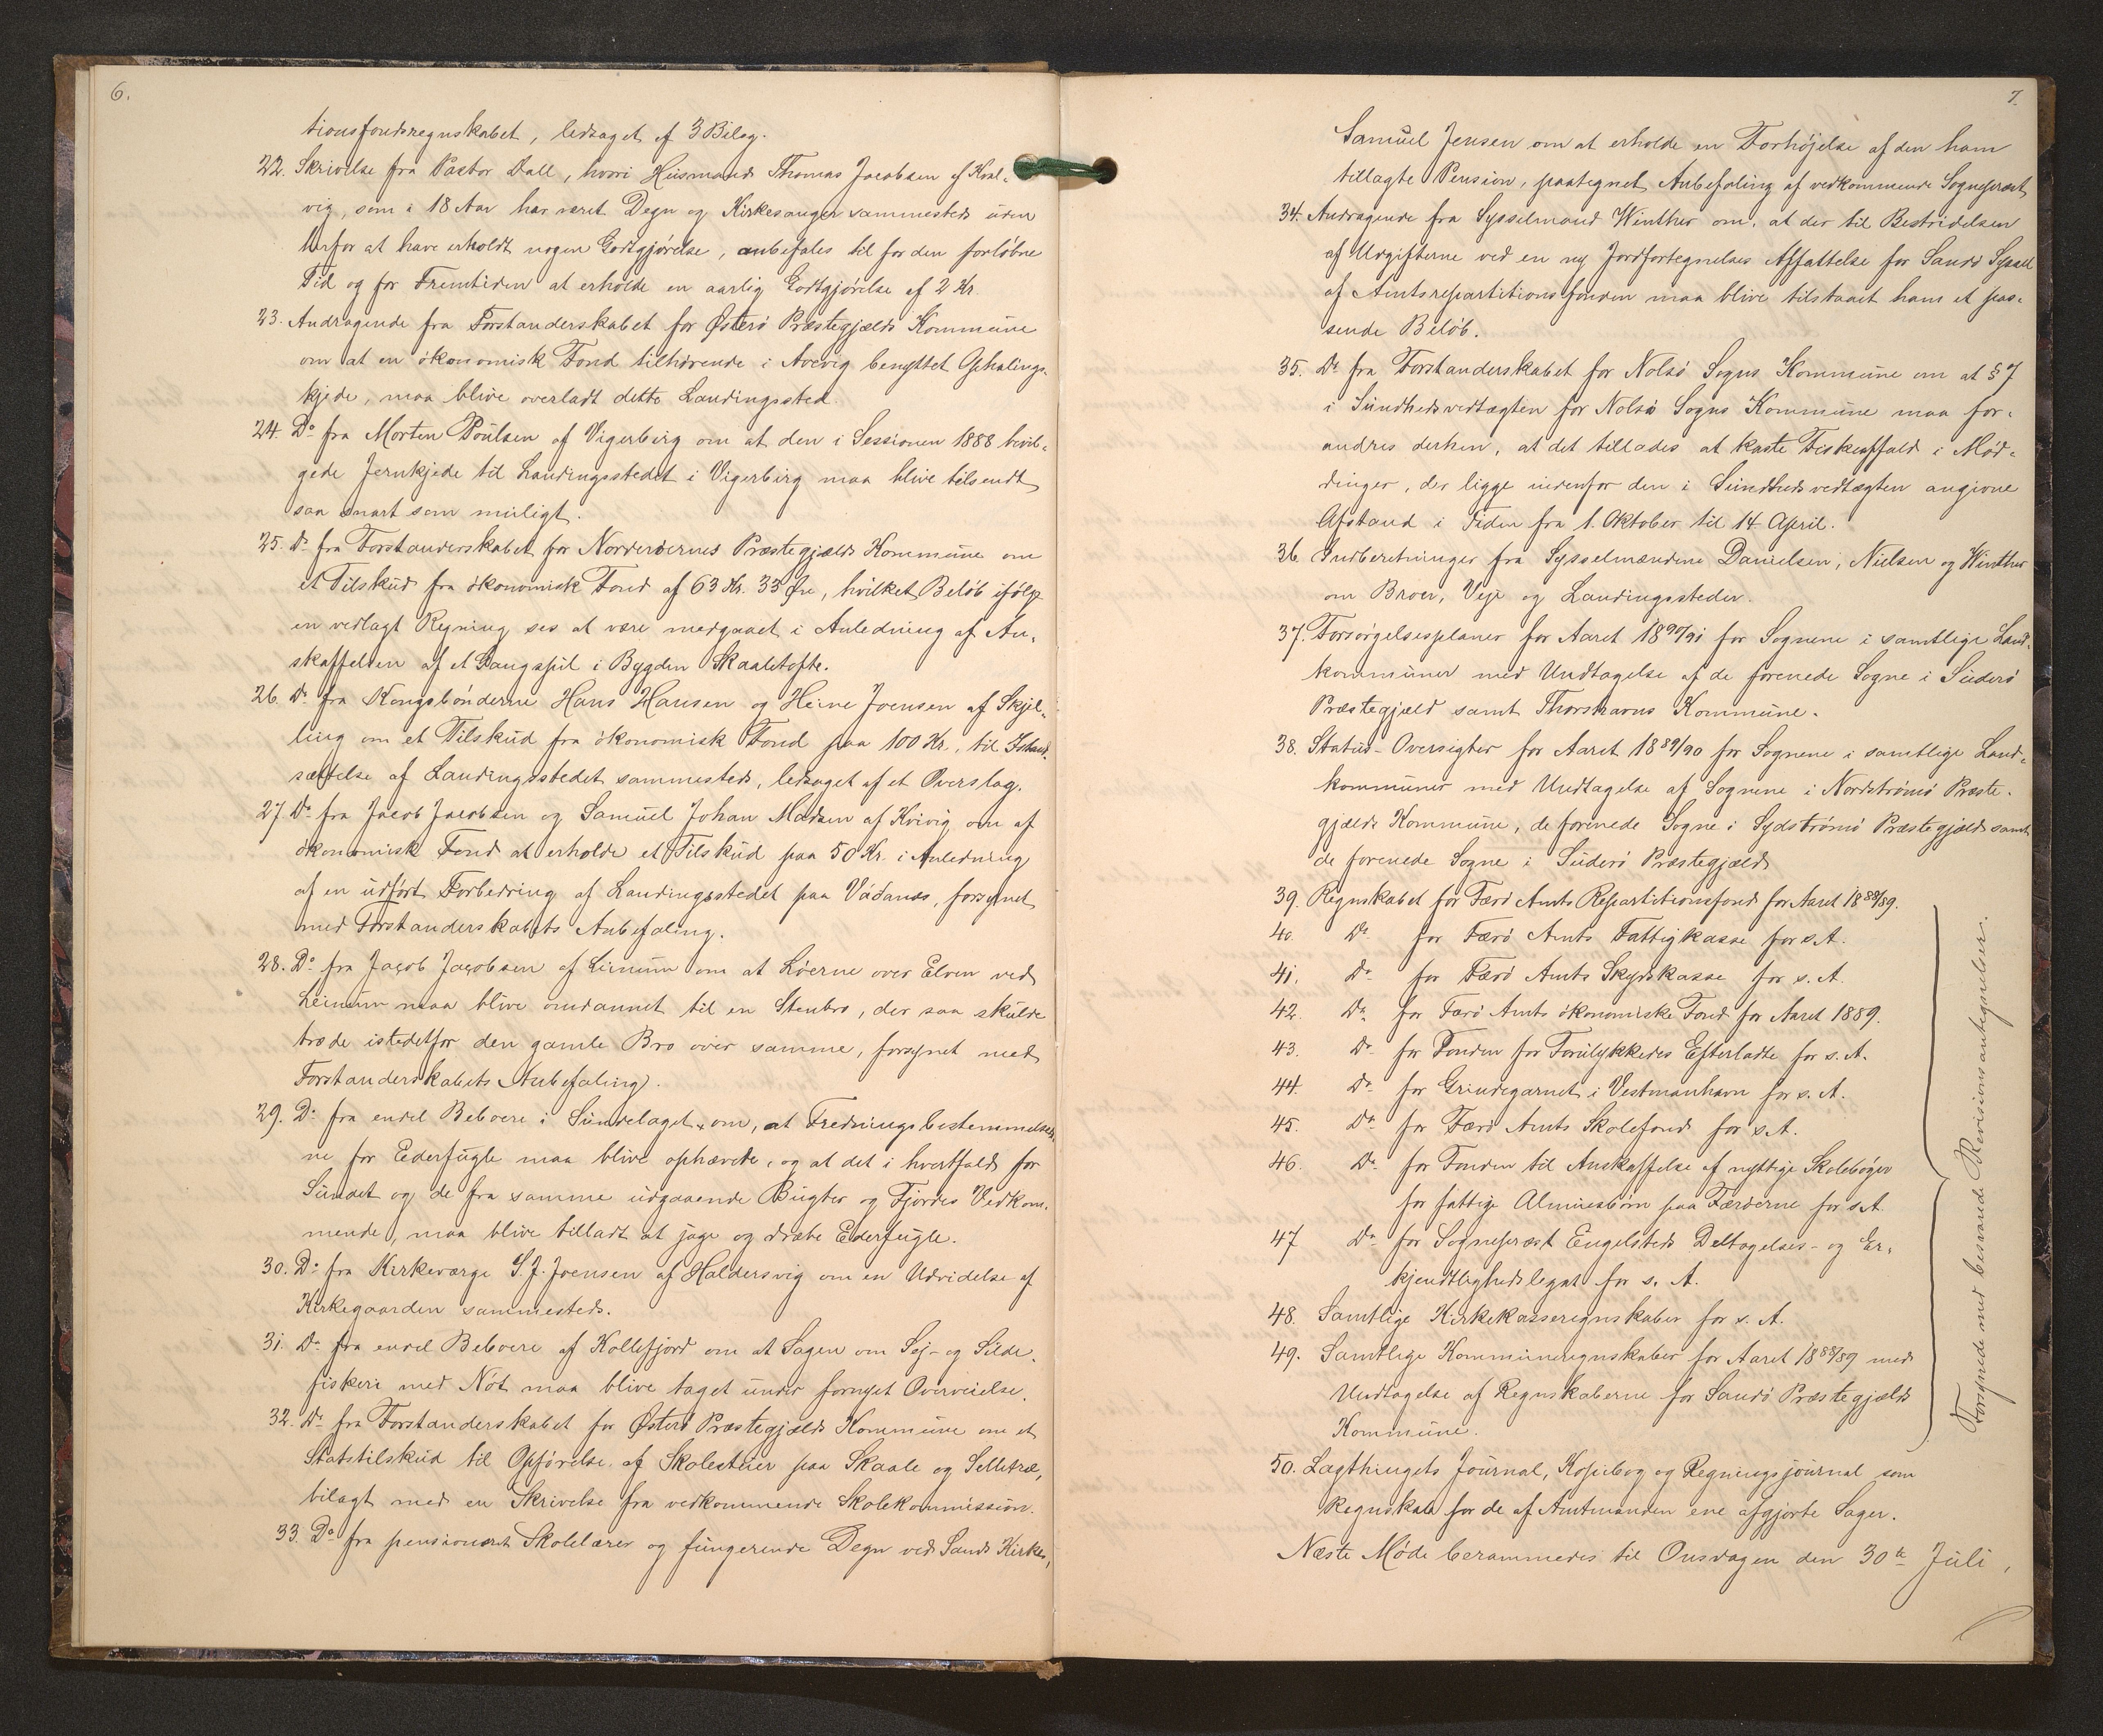 6.
tionsfondsregnskabet, ledsaget af 3 Bilag.
22. Skrivelse fra Pastor Dall, hvori Husmand Thomas Jacobsen af Kval-
vig, som i 18 Aar har været Degn og Kirkesanger sammesteds uden
herfor at have erholdt nogen Godtgjørelse, anbefales til for den forløbne
Tid og for Fremtiden at erholde en aarlig Godtgjørelse af 2 Kr.
23. Andragende fra Forstanderskabet for Østerø Præstegjælds Kommune
om at en økonomisk Fond tilhørende i Arevig benyttet Ophalings-
kjede, maa blive overladt dette Landingssted.
24. Do fra Morten Poulsen af Vigerbirg om at den i Sessionen 1888 bevil-
gede Jernkjede til Landingsstedet i Vigerbirg maa blive tilsendt
saa snart som muligt.
25. Do fra Forstanderskabet for Norderøernes Præstegjælds Kommune om
et Tilskud fra økonomisk Fond af 63 Kr. 33 Øre, hvilket Beløb ifølge
en vedlagt Regning ses at være medgaaet i Anledning af An-
skaffelsen af et Gangspil i Bygden Skaaletofte.
26. Do fra Kongsbønderne Hans Hansen og Heine Joensen af Skjel-
ling om et Tilskud fra økonomisk Fond paa 100 Kr. til Istand-
sættelse af Landingsstedet sammesteds, ledsaget af et Overslag.
27. Do fra Jacob Jacobsen og Samuel Johan Madsen af Kvivig om af
økonomisk Fond at erholde et Tilskud paa 50 Kr. i Anledning
af en udført Forbedring af Landingsstedet paa Vádanæs, forsynet
med Forstanderskabets Anbefaling.
28. Do fra Jacob Jacobsen af Leinum om at Løerne over Elven ved
Leinum maa blive omdannet til en Stenbro, der saa skulde
træde istedetfor den gamle Bro over samme, forsynet med
Forstanderskabets Anbefaling.
29. Do fra endel Beboere i Sundelaget om, at Fredningsbestemmelser-
ne for Ederfugle maa blive ophævede, og at det i hvertfald for
Sundet og de fra samme udgaaende Bugter og Fjordes Vedkom-
mende, maa blive tilladt at jage og dræbe Ederfugle.
30. Do fra Kirkeværge S. J. Joensen af Haldersvig om en Udvidelse af
Kirkegaarden sammesteds.
31. Do fra endel Beboere af Kollefjord om at Sagen om Sej- og Silde-
fiskeri med Nót maa blive taget under fornyet Overveielse.
32. Do fra Forstanderskabet for Østerø Præstegjælds Kommune om et
Statstilskud til Opførelse af Skolestuer paa Skaale og Selletræ,
bilagt med en Skrivelse fra vedkommende Skolekommission.
33. Do fra pensioneret Skolelærer og fungerende Degn ved Sands Kirke,
7.
Samuel Jensen om at erholde en Forhøjelse af den ham
tillagte Pension, paategnet Anbefaling af vedkommende Sognepræst
34. Andragende fra Sysselmand Winther om, at der til Bestridelsen
af Udgifterne ved en ny Jordfortegnelses Affattelse for Sandø Syssel
af Amtsrepartitionsfonden maa blive tilstaaet ham et pas-
sende Beløb.
35. Do fra Forstanderskabet for Nolsø Sogns Kommune om at § 7
i Sundhedsvedtægten for Nolsø Sogns Kommune maa for-
andres derhen, at det tillades at kaste Fiskeaffald i Mød-
dinger, der ligge indenfor den i Sundhedsvedtægten angivne
Afstand i Tiden fra 1. Oktober til 14 April.
36. Indberetninger fra Sysselmændene Danielsen, Nielsen og Winther
om Broer, Veje og Landingssteder.
37. Forsørgelsesplaner for Aaret 1890/91 for Sognene i samtlige Land-
kommuner med Undtagelse af de forenede Sogne i Suderø
Præstegjæld samt Thorshavns Kommune.
38. Status-Oversigter for Aaret 1889/90 for Sognene i samtlige Land-
kommuner med Undtagelse af Sognene i Nordstrømø Præste-
gjælds Kommune, de forenede Sogne i Sydstrømø Præstegjæld samt
de forenede Sogne i Suderø Præstegjæld
39. Regnskabet for Færø Amts Repartitionsfond for Aaret 1888/89.
40. Do for Færø Amts Fattigkasse for s. A.
41. Do for Færø Amts Skydskasse for s. A.
42. Do for Færø Amts økonomiske Fond for Aaret 1889.
43. Do for Fonden for Forulykkedes Efterladte for s. A.
44. Do for Grindegarnet i Vestmanhavn for s. A.
45. Do for Færø Amts Skolefond for s. A.
46. Do for Fonden til Anskaffelse af nyttige Skolebøger
for fattige Almuesbørn paa Færøerne for s. A.
47 Do for Sognepræst Engelsteds Deltagelses- og Er-
kjendtlighedslegat for s. A.
48. Samtlige Kirkekasseregnskaber for s. A.
49. Samtlige Kommuneregnskaber for Aaret 1888/89 med
Undtagelse af Regnskaberne for Sandø Præstegjælds
Kommune.
Forsynede med besvarede Revisionsantegnelser.
50. Lagthingets Journal, Kopibog og Regningsjournal som
Regnskab for de af Amtmanden ene afgjorte Sager.
Næste Møde berammedes til Onsdagen den 30te Juli,